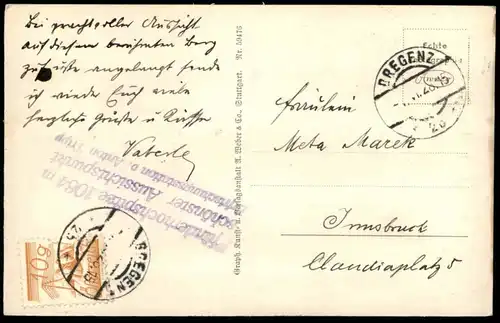 Bei prachtvoller Aussicht
auf diesem berühmten Berg
zuerste angelangt sende
ich wieder Euch viele
herzliche Grüsse u. Küsse
Vaterle
Pfänderhochspitze 1064 m
Schönster Aussichtspunkt
Graph. Kunst- u. Verlagsanstalt A. Weber & Co., Stuttgart. Nr. 59476
Echte
BREGENZ
Fräulein
Meta Marek
Innsbruck
Claudiaplatz 5
10g
BREGENZ